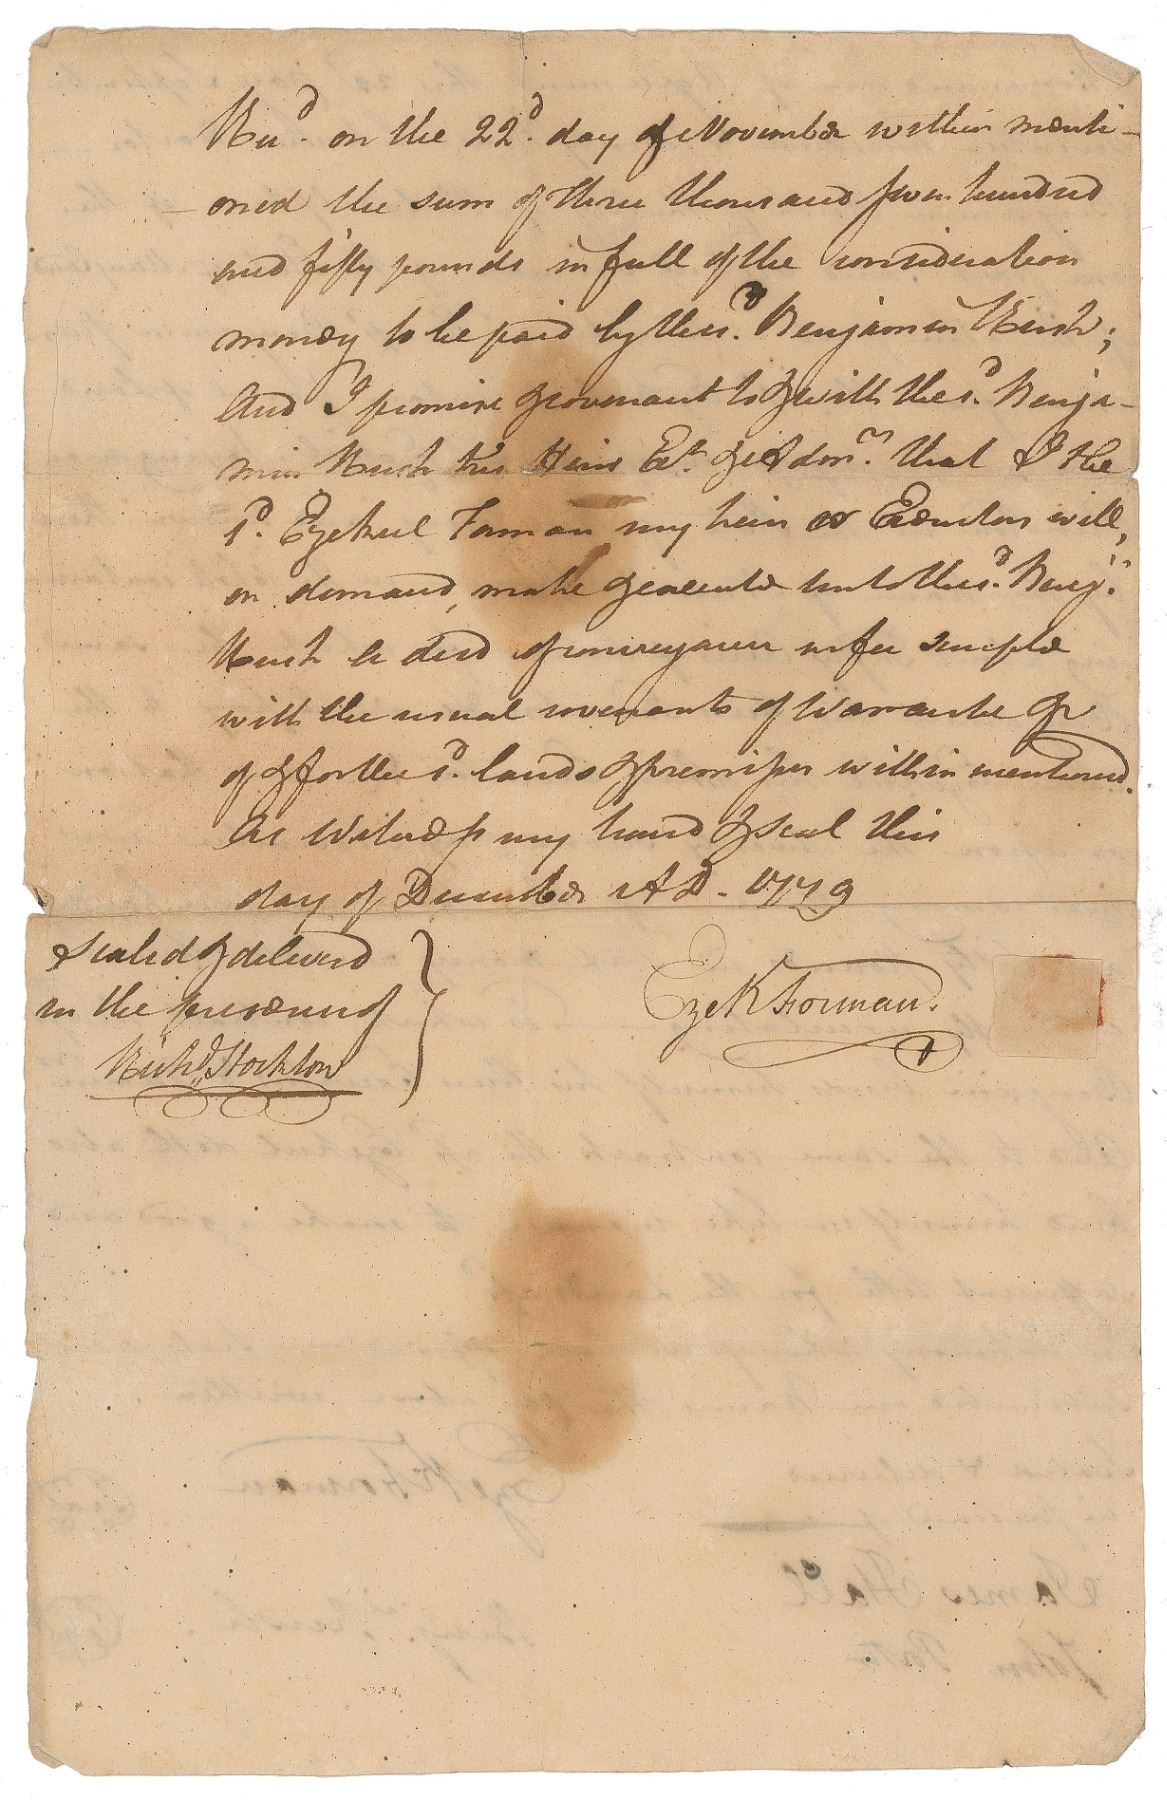 Rec.d on the 22.d day of November within menti-
-oned the sum of three thousand four hundred
and fifty pounds in full of the consideration
money to be paid by the s.d Benjamin Rush;
And I promise & covenant to & with the s.d Benja-
min Rush his Heirs Ex.rs & Adm.rs that I the
s.d Ezekiel Forman my heirs or Executors will,
on demand, make & execute unto the s.d Benj.n
Rush a deed of conveyance in fee simple
with the usual covenants of Warrantee &c
of & for the s.d lands & premises within mentioned.
As Witness my hand & seal this
day of December A D - 1779
Sealed & delivered
in the presence of
Rich.d Stockton
Ezek Forman.